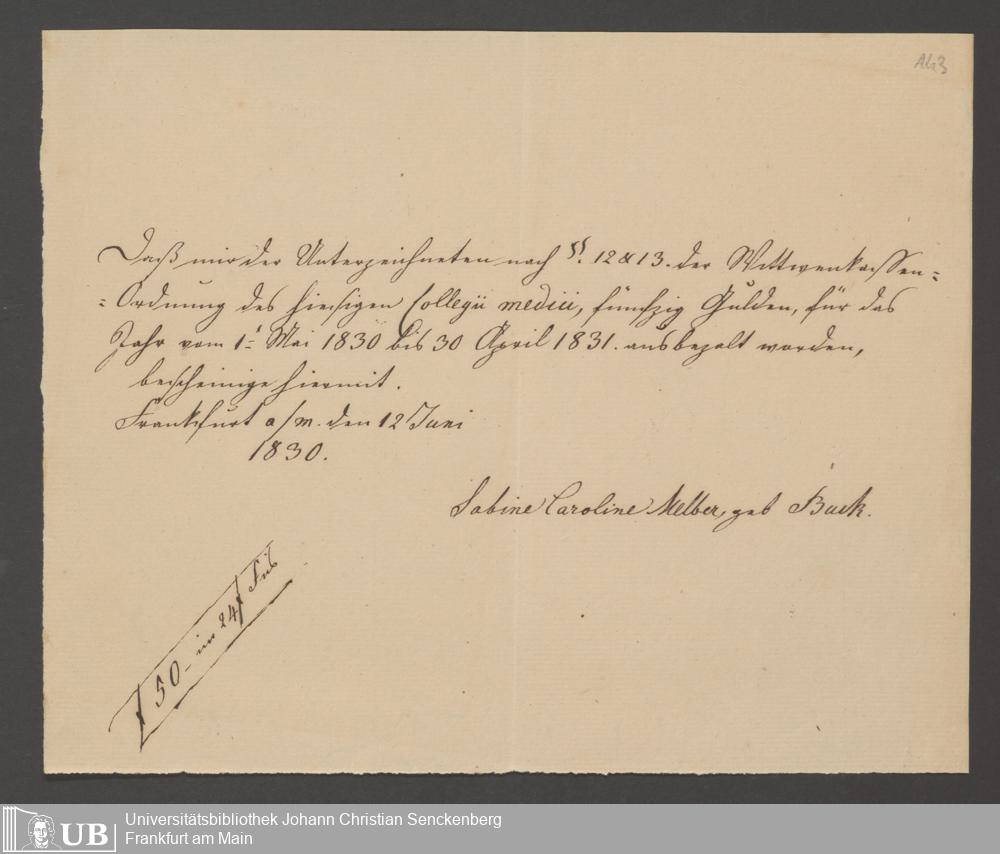 Ak3
Daß mir der Unterzeichneten nach §§. 12 & 13. der Wittwenkassen-
-Ordnung des hiesigen Collegii medici, fünfzig Gulden, für das
Jahr vom 1t Mai 1830 bis 30 April 1831. ausbezalt worden,
bescheinige hiermit.
Frankfurt a/m. den 12 Juni
1830.
Sabine Caroline Melber, geb Buck.
f 50 – im 24f Fus
UB
Universitätsbibliothek Johann Christian Senckenberg
Frankfurt am Main